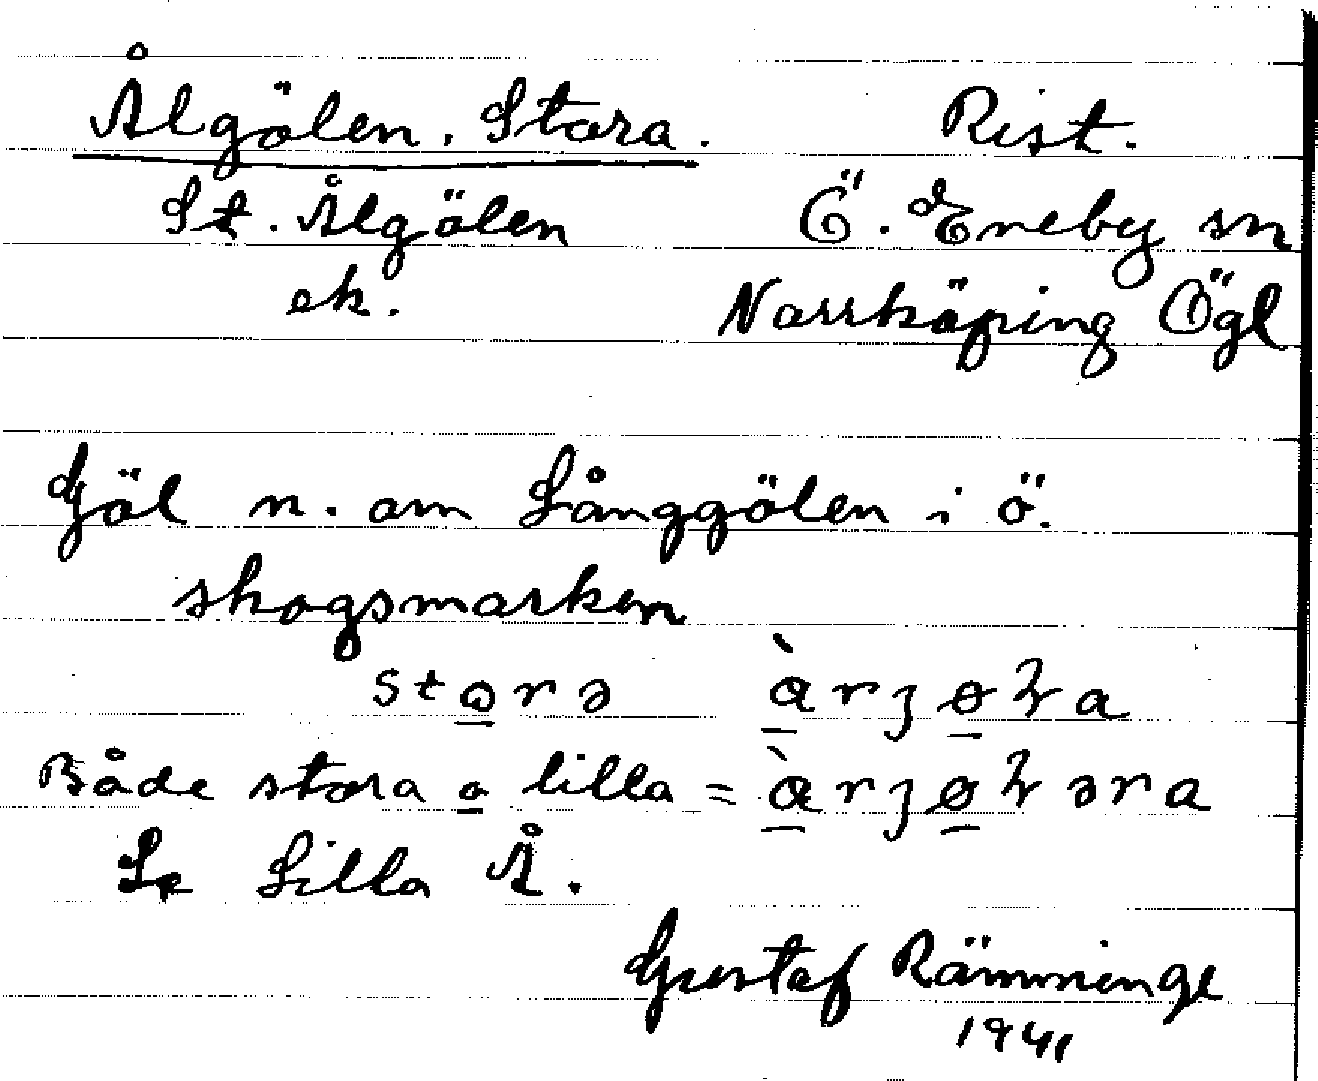 Ålgölen, Stora. Rist.
St. Ålgölen Ö. Eneby sn
ek. Norrköping Ögl
Göl n. om Långgölen i ö.
skogsmarken
Både stora o lilla =
Se Lilla Å.
Gustaf Rämninge
1941